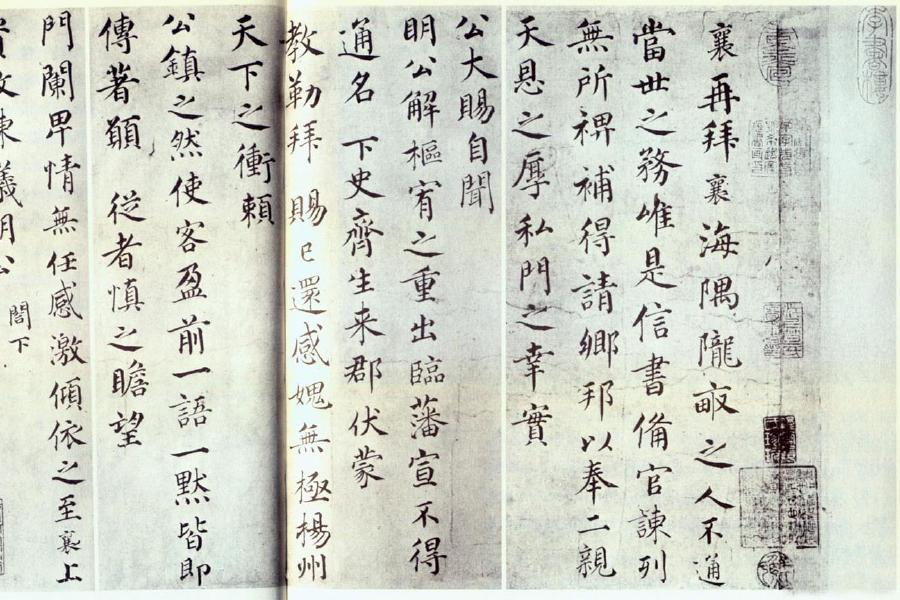 襄再拜襄海隅隴畝之人不通
當世之務唯是信書備官諫列
無所裨補得請鄉邦以奉二親
天恩之厚私門之幸實
公大賜自聞
明公解樞宥之重出臨藩宣不得
通名 下史齊生来郡伏蒙
教勒拜 賜已還感媿無極楊州
天下之衝賴
公鎮之然使客盈前一語一默皆即
傳著願 従者慎之瞻望
門闌卑情無任感激傾依之至襄上
明公 閤下